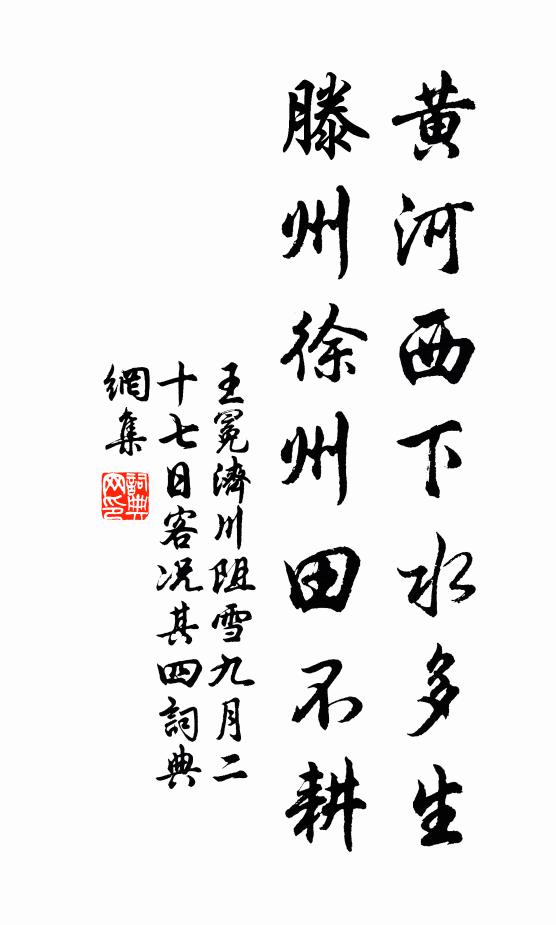 黃河西下水多生
滕州徐州田不耕
王冕濟川阻雪九月二
十七日客况其四詞典
網集
詞典
网印